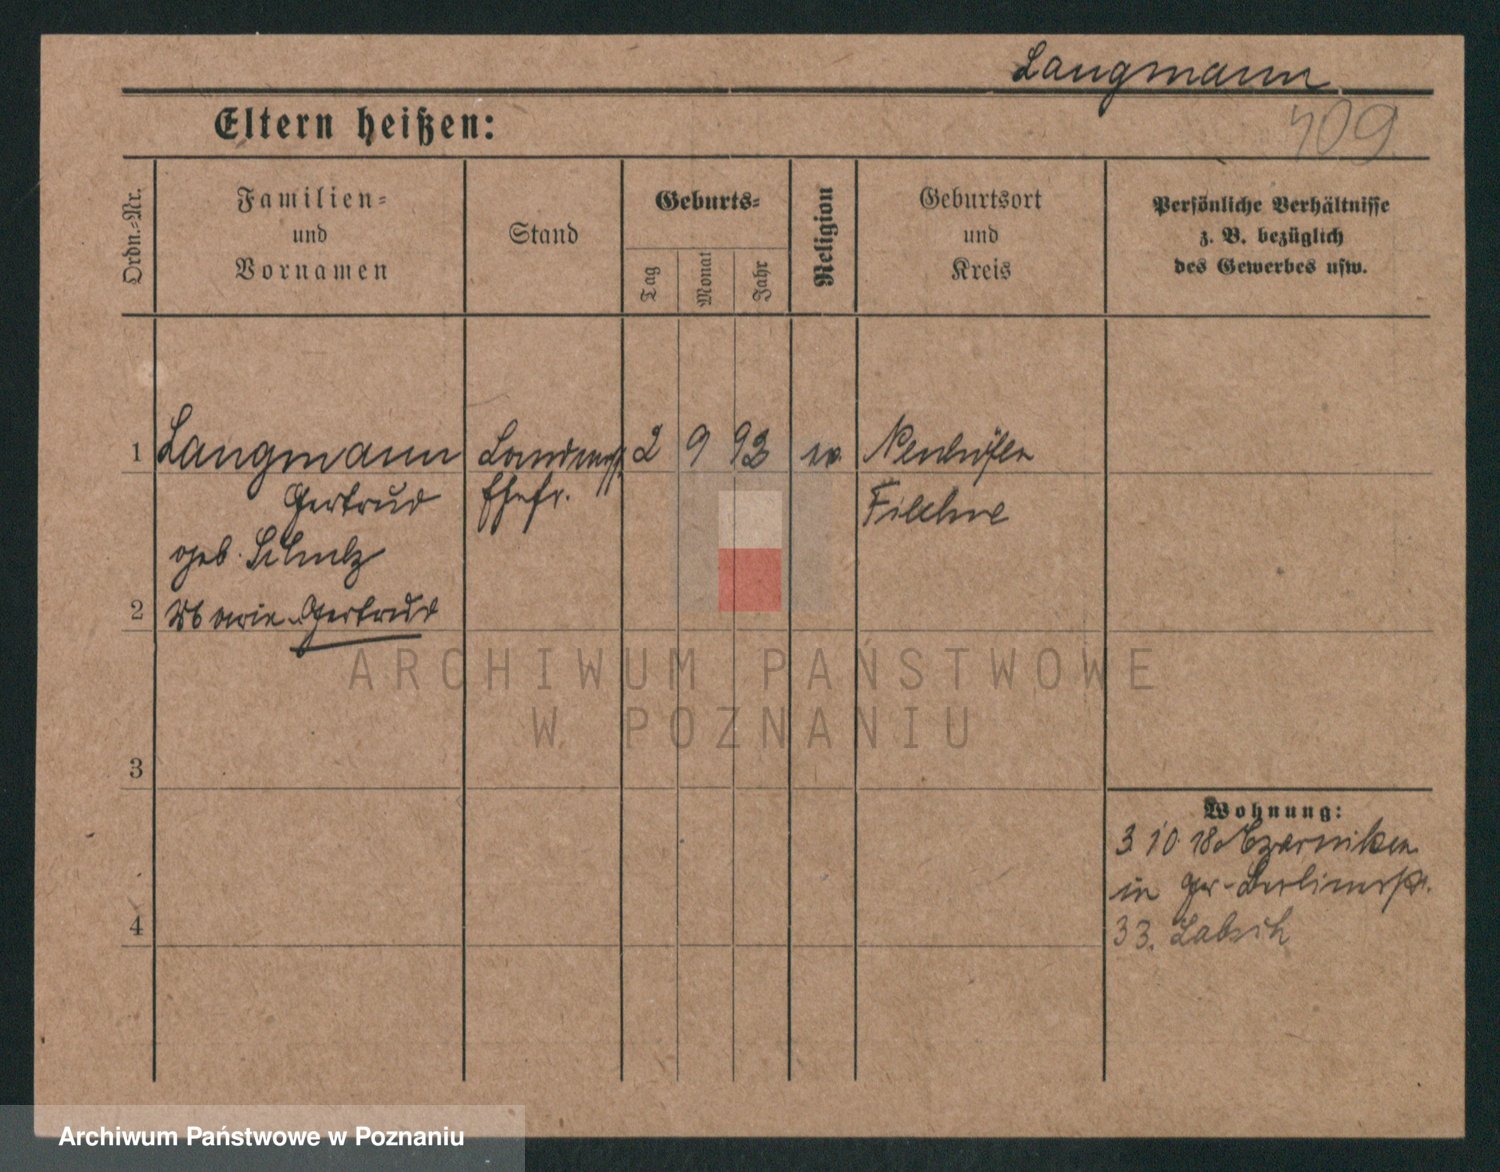 Langmann
409
Eltern heißen:
Ordn.-Nr.
Familien-
und
Vornamen
Stand
Geburts-
Tag
Monat
Jahr
Religion
Geburtsort
und
Kreis
Persönliche Verhältnisse
z. B. bezüglich
des Gewerbes usw.
1 Langmann 2 9 93 ev. Neuhöfen
Gertrud Ehefr. Filehne
geb. Schulz
2 Marie-Gertrud
ARCHIWUM PAŃSTWOWE
W POZNANIU
3
Wohnung:
3 10 18 Czarnikau
in Gr-Berlinerstr.
4
33.
Archiwum Państwowe w Poznaniu